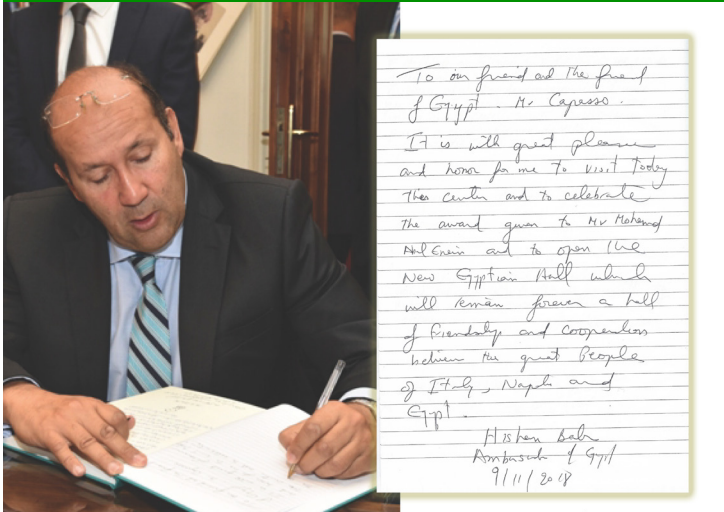 To our friend and the friend
of Egypt. Mr Capasso.
It is with great pleasure
and honor for me to visit today
this center and to celebrate
the award given to Mr Mohamed
Abul Enein and to open the
New Egyptian Hall which
will remain forever a hall
of friendship and cooperation
between the great People
of Italy, Naples and
Egypt.
Hisham Badr
Ambassador of Egypt
9/11/2018